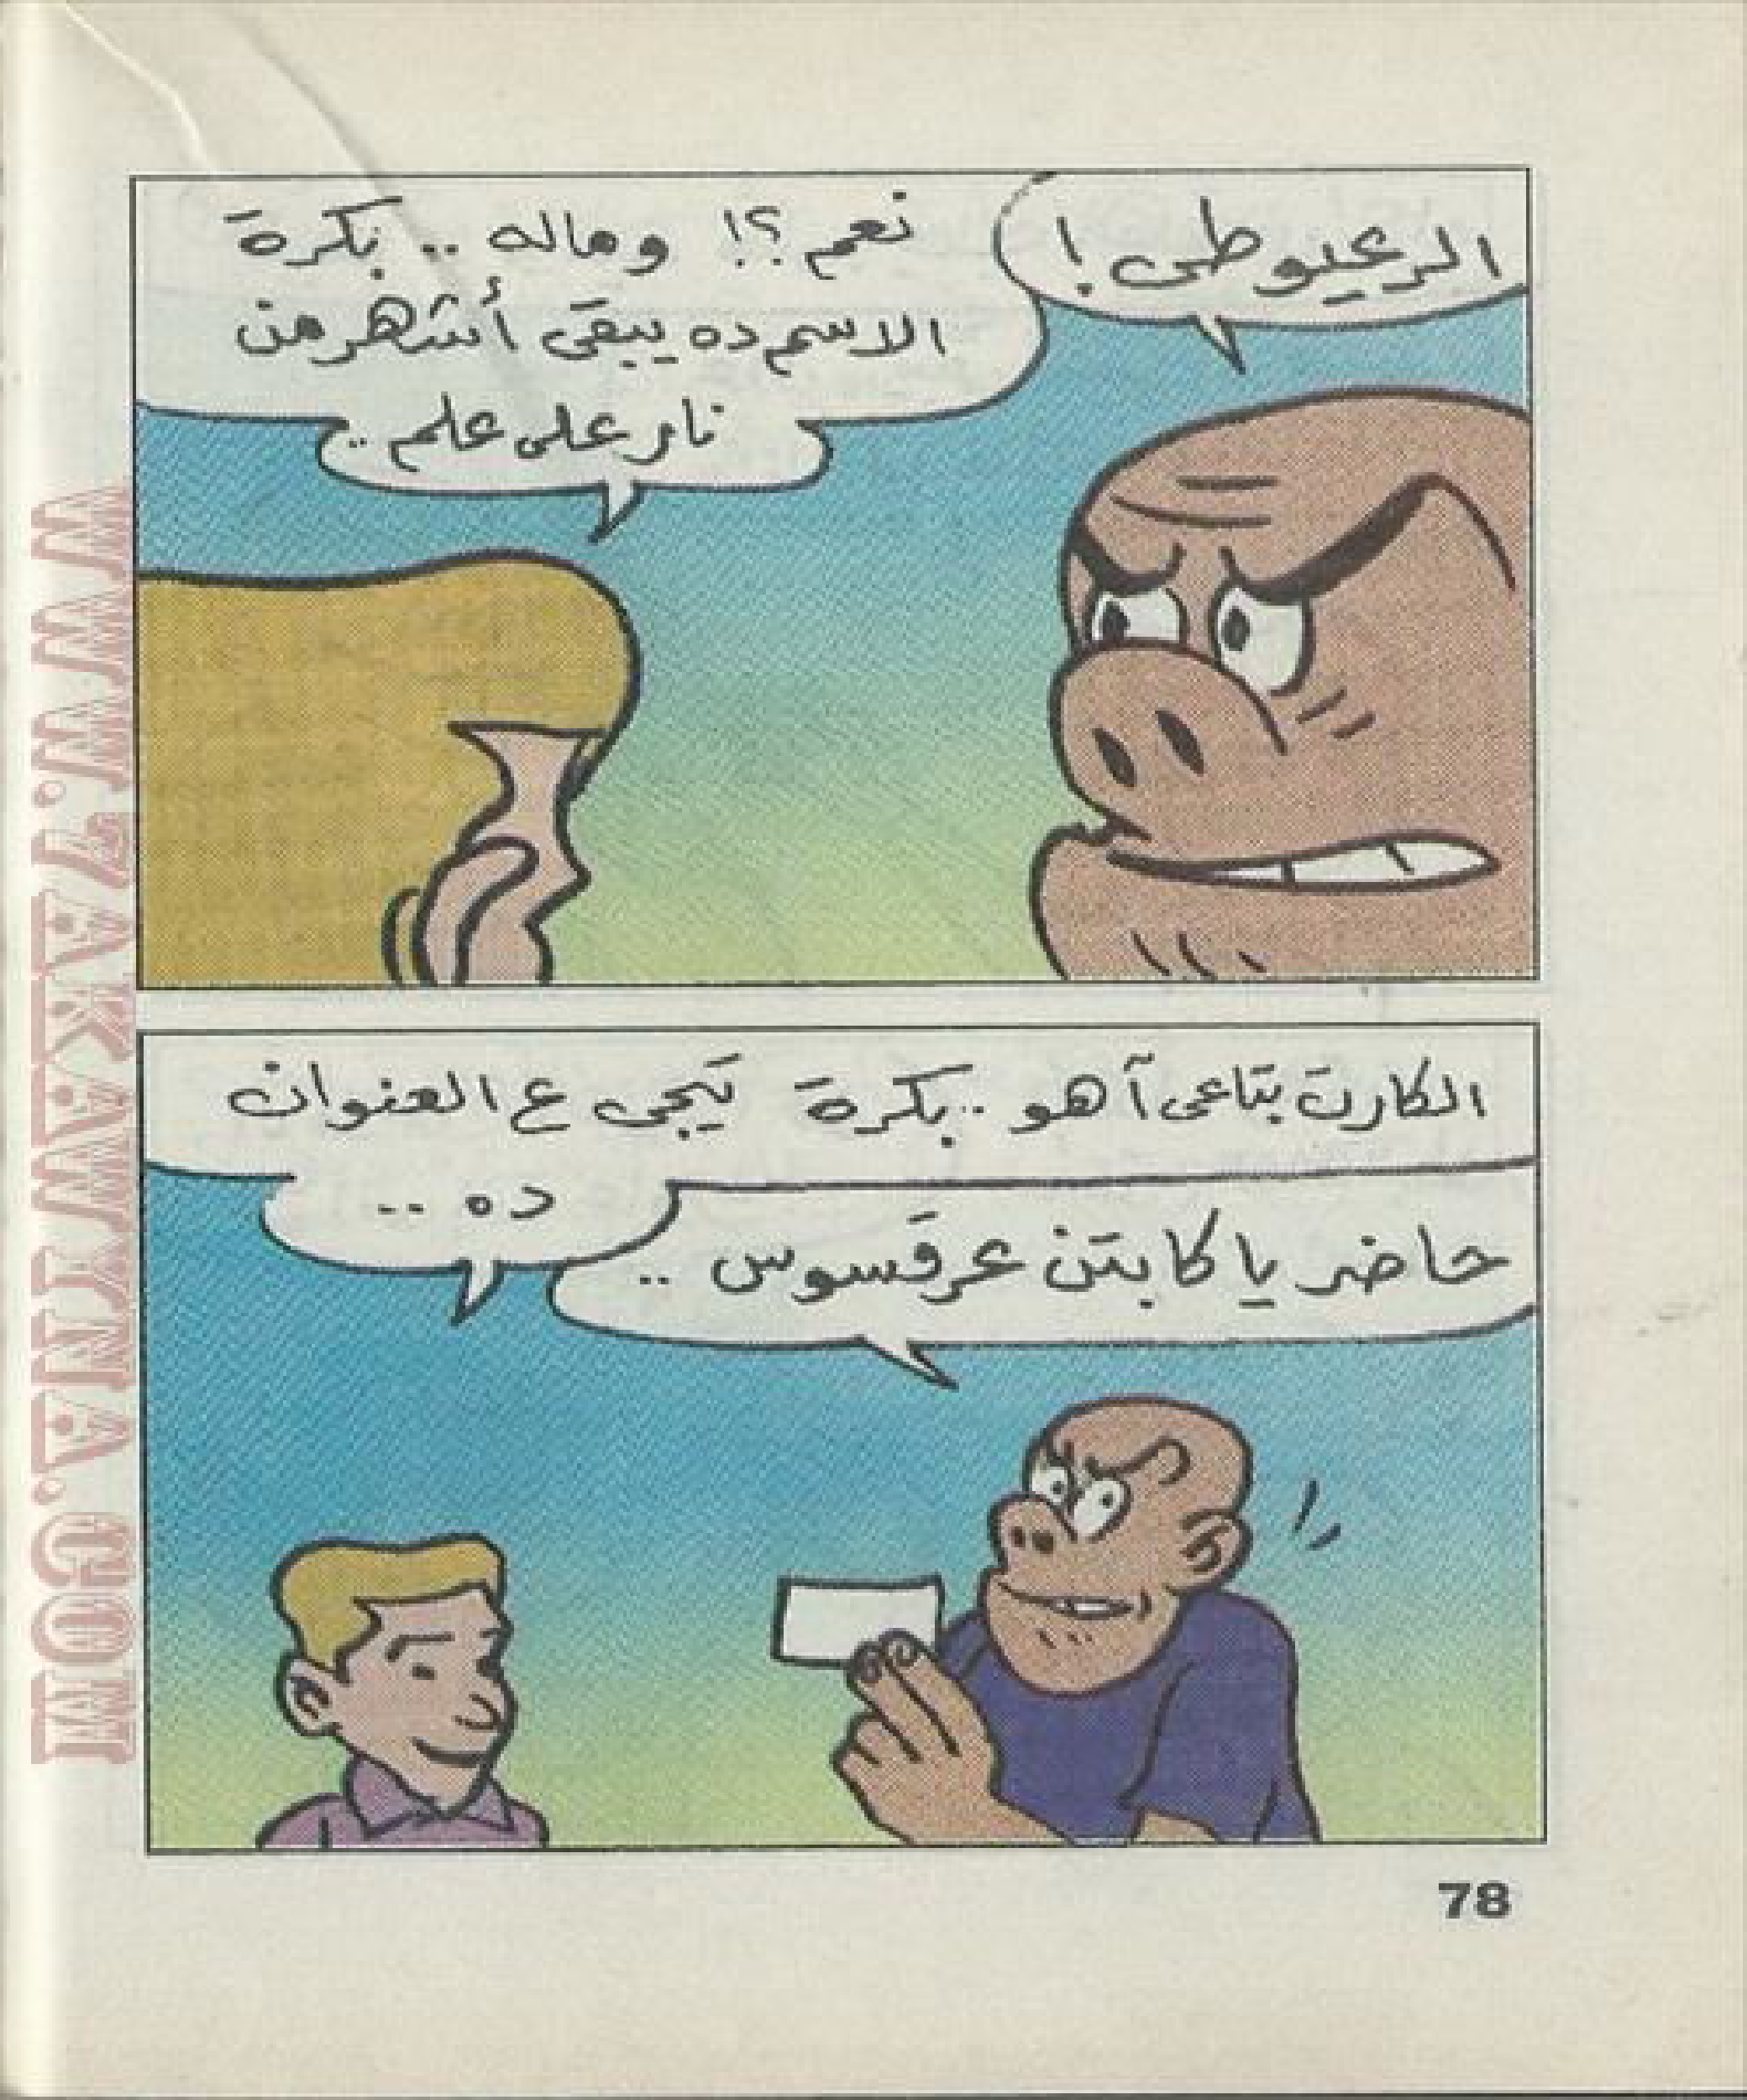 الرعيوطى!
نعم؟! وماله .. بكرة
الاسم ده يبقى أشهر من
نار على علم ..
الكارت بتاعى آهو .. بكرة تيجى ع العنوان
ده ..
حاضر يا كابتن عرقسوس ..
78
WWW.7AKAWYINA.COM